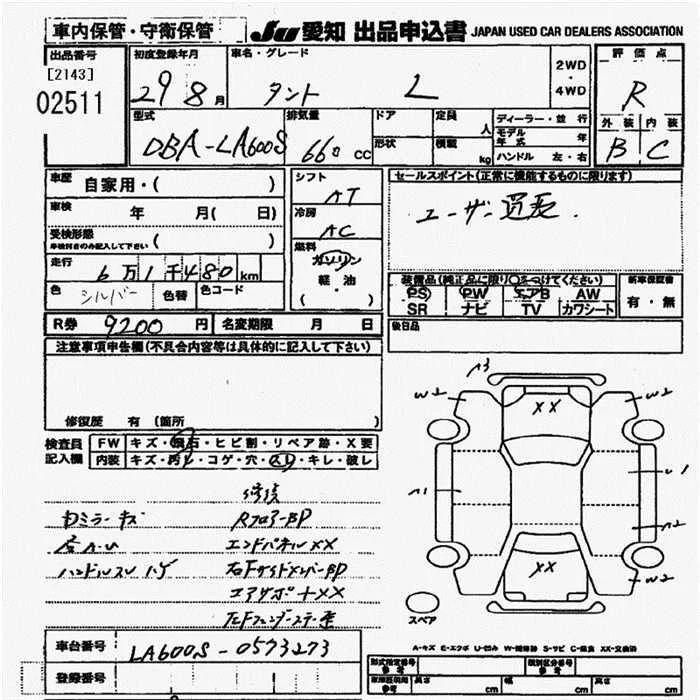 車内保管・守衛保管
JU 愛知 出品申込書 JAPAN USED CAR DEALERS ASSOCIATION
出品番号
[2143]
02511
初度登録年月
29 8月
車名・グレード
タント L
2WD
・
4WD
評価点
R
外装 内装
B C
型式
DBA-LA600S
排気量
660 CC
ドア
形状
定員
人
積載
kg
ディーラー・並行
モデル年式 年
ハンドル 左・右
車歴 自家用・( )
車検 年 月( 日)
受検形態
車検付きのみ記入して下さい ( )
走行 6万1千480km
色 シルバー 色替 色コード
シフト
AT
冷房
AC
燃料
ガソリン
軽油
( )
セールスポイント(正常に機能するものに限ります)
ユーザー買取.
装備品(純正品に限り○をつけてください)
PS PW エアB AW
SR ナビ TV カワシート
新車保証書
有・無
後日品
R券 9200円 名変期限 月 日
注意事項申告欄(不具合内容等は具体的に記入して下さい)
修復歴 有(箇所 )
検査員記入欄
FW キズ・飛石・ヒビ割・リペア跡・X要
内装 キズ・汚レ・コゲ・穴・スレ・キレ・破レ
修復
ミラーキズ RフロアーBP
エンドパネルXX
ハンドルスレ ハゲ 右FサイドメンバーBP
コアサポートXX
A3
W2 W2
XX
A1 U1
A2
W2
XX
スペア
A-キズ E-エクボ U-凹み W-補修跡 S-サビ C-腐食 XX-交換済
車台番号 LA600S-0573273
登録番号
型式指定番号 類別区分番号
車庫証明用 長さ cm 幅 cm 高さ cm